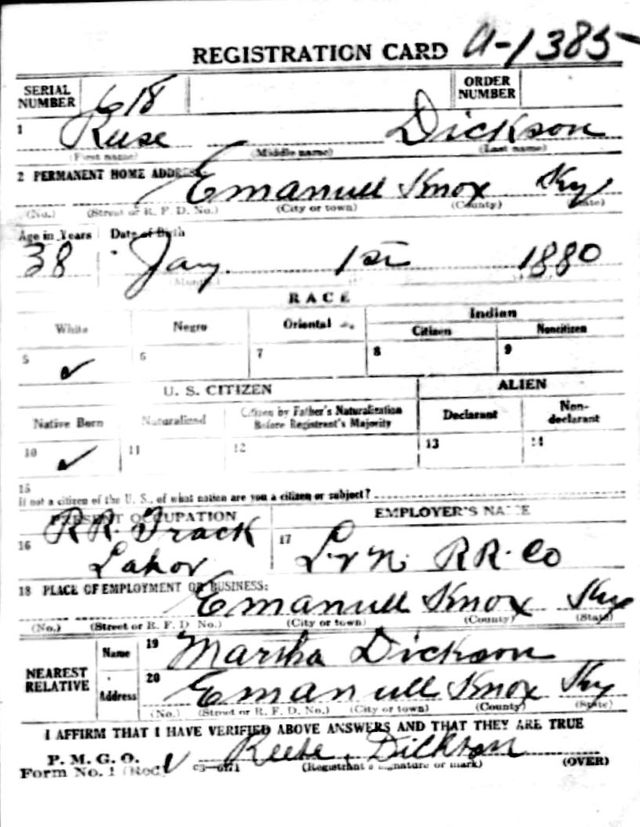 REGISTRATION CARD A-1385
SERIAL NUMBER 618 ORDER NUMBER
1 Reese Dickson
(First name) (Middle name) (Last name)
2 PERMANENT HOME ADDRESS:
Emanuell Knox Ky
(No.) (Street or R. F. D. No.) (City or town) (County) (State)
Age in Years Date of Birth
38 Jany. 1st 1880
RACE
White Negro Oriental Indian
Citizen Noncitizen
5 ✓ 6 7 8 9
U. S. CITIZEN ALIEN
Native Born Naturalized Citizen by Father's Naturalization Before Registrant's Majority Declarant Non-declarant
10 ✓ 11 12 13 14
15
If not a citizen of the U. S., of what nation are you a citizen or subject?
PRESENT OCCUPATION EMPLOYER'S NAME
16 RR. Track Labor 17 L & N. RR. Co
18 PLACE OF EMPLOYMENT OR BUSINESS:
Emanuell Knox Ky
(No.) (Street or R. F. D. No.) (City or town) (County) (State)
NEAREST RELATIVE
Name 19 Martha Dickson
Address 20 Emanuell Knox Ky
(No.) (Street or R. F. D. No.) (City or town) (County) (State)
I AFFIRM THAT I HAVE VERIFIED ABOVE ANSWERS AND THAT THEY ARE TRUE
P. M. G. O.
Form No. 1 (Red) Reese Dickson
(Registrant's signature or mark) (OVER)